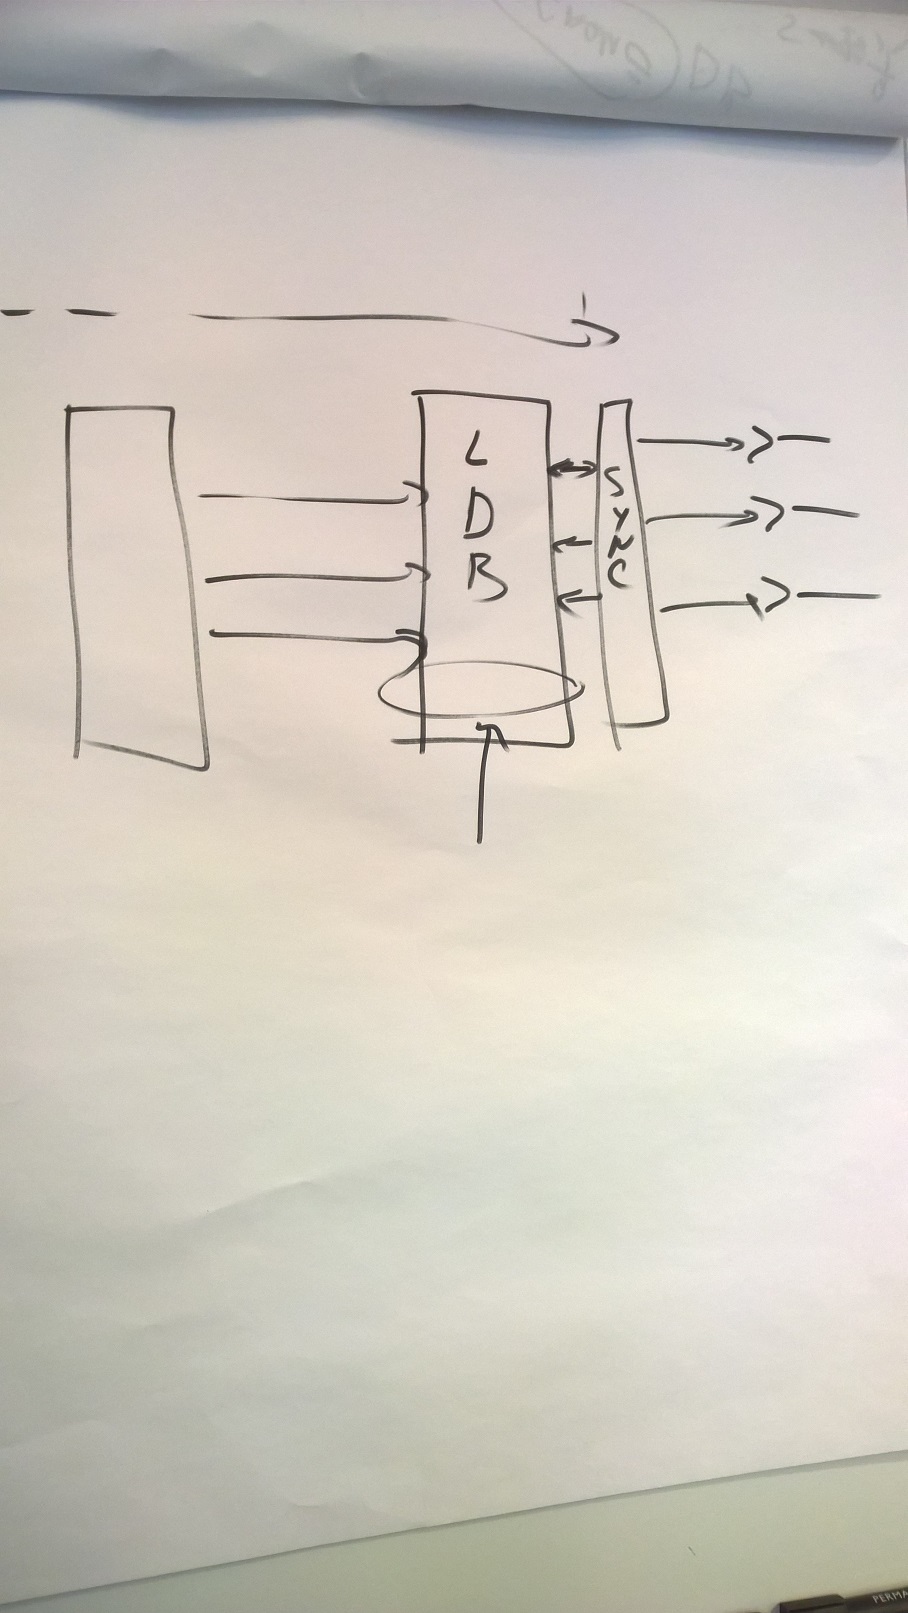 L
D
B
SYNC
PERMA